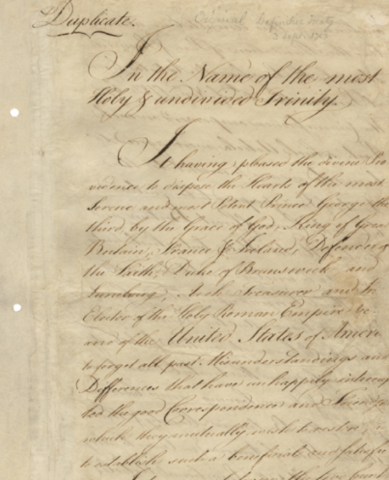 Duplicate.
Original Definitive Treaty
3 Sept. 1783
In the Name of the most
Holy & undivided Trinity.
It having pleased the divine Pro
vidence to dispose the Hearts of the most
Serene and most Potent Prince George the
third, by the Grace of God, King of Great
Britain, France & Ireland, Defender of
the Faith, Duke of Brunswick and
Lunebourg, Arch Treasurer and
Elector of the Holy Roman Empire &c
and of the United States of Amer
to forget all past Misunderstandings an
Differences that have unhappily interru
ted the good Correspondence and
which they mutually wish to restore,
to establish such a beneficial and